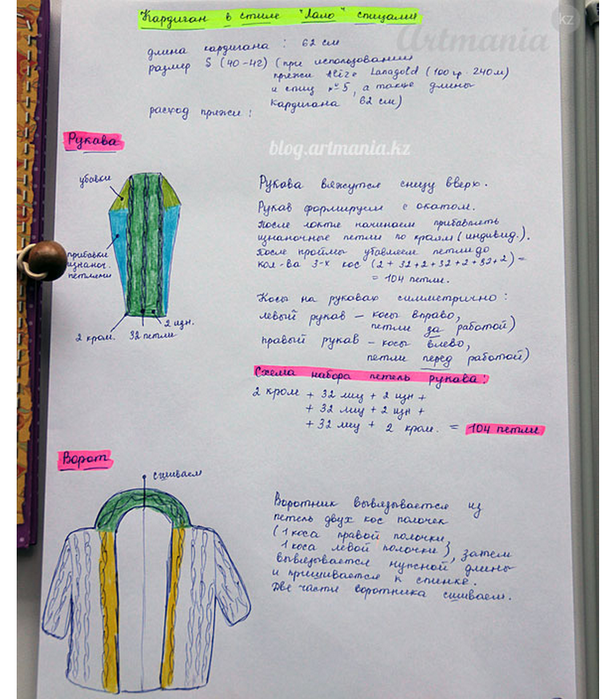 Кардиган в стиле "Лало" спицами
kz
Artmania
длина кардигана : 62 см
размер S (40-42) (при использовании
пряжи Alize Lanagold (100 гр. 240 м)
и спиц №5, а также длины
кардигана 62 см)
расход пряжи :
blog.artmania.kz
Рукава
убавки
прибавки
изнаноч.
петлями
2 кром.
32 петли
2 изн.
Рукава вяжутся снизу вверх.
Рукав формируем с окатом.
После локтя начинаем прибавлять
изнаночные петли по краям (индивид.).
После проймы убавляем петли до
кол-ва 3-х кос (2 + 32 + 2 + 32 + 2 + 32 + 2) =
= 104 петли.
Косы на рукавах симметрично :
левый рукав – косы вправо,
петли за работой)
правый рукав – косы влево,
петли перед работой)
Схема набора петель рукава:
2 кром + 32 лиц + 2 изн +
+ 32 лиц + 2 изн +
+ 32 лиц + 2 кром. = 104 петли
Ворот
сшиваем
Воротник вывязывается из
петель двух кос полочек
(1 коса правой полочки,
1 коса левой полочки), затем
вывязывается нужной длины
и пришивается к спинке.
Две части воротника сшиваем.